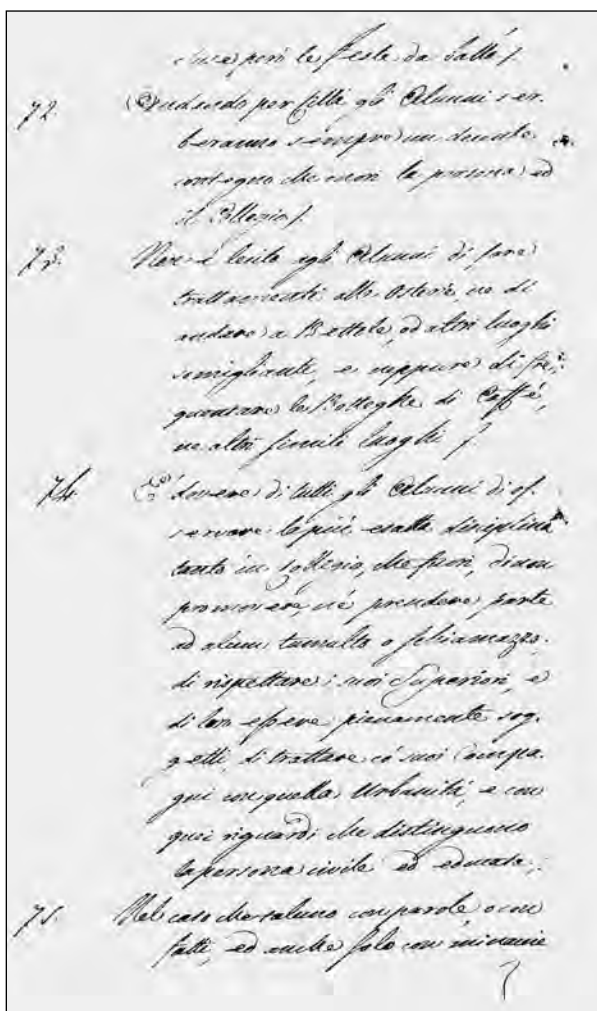 però le feste da ballo.
72. Andando per Città gli Alunni ser-
beranno sempre un decente
contegno che onori la persona ed
il Collegio.
73. Non è lecito agli Alunni di fare
trattamenti alle Osterie, ne di
andare a Bettole, od altri luoghi
somigliante, e neppure di fre-
quentare le Botteghe di Caffé,
ne altri simili luoghi.
74. É dovere di tutti gli Alunni di os-
servare la più esatta disciplina
tanto in Collegio, che fuori, di non
promovere, né prendere parte
ad alcun tumulto o schiamazzo.
di rispettare i suoi Superiori, e
di loro essere pienamente sog-
getti, di trattare có suoi Compa-
gni con quella Urbanità, e con
quei riguardi che distinguono
la persona civile ed educata.
75. Nel caso che taluno con parole o con
fatti, ed anche solo con minaccie